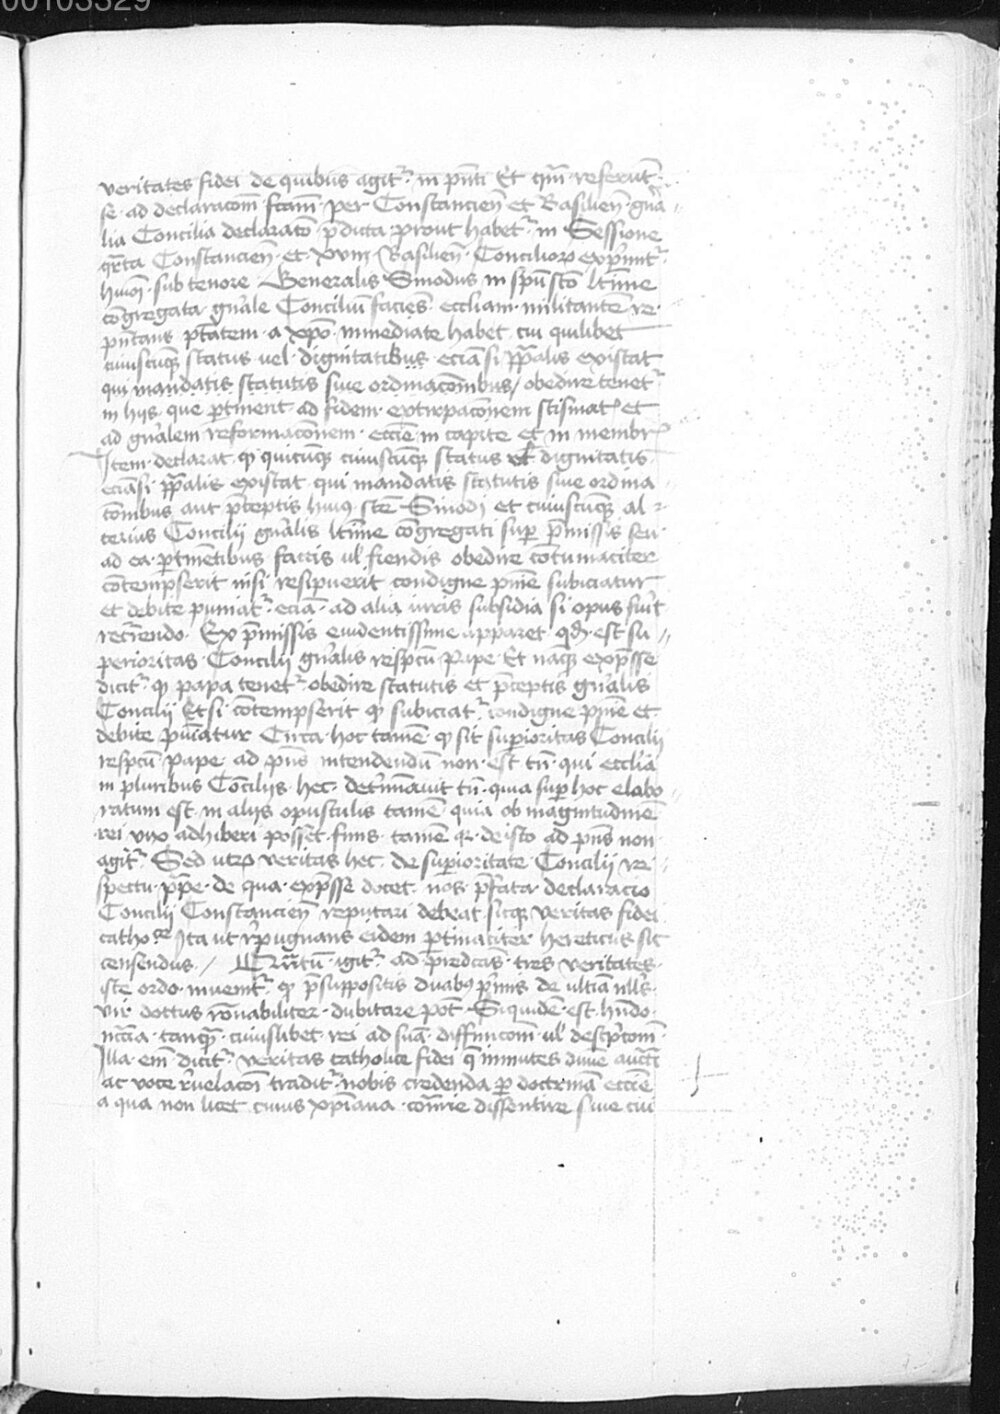 00103329
veritates fidei de quibus agitᷣ in pn̄ti Et qm̄ referūtᷣ
se ad declaracōm fcām per Constancien̄ et Basilien̄ gn̄a
lia Concilia declarato p̄dicta prout habetᷣ in Sessione
qr̄ta Constancien̄ et xviij Basilien̄ Concilioꝝ exprimitᷣ
sub tenore Generalis Sinodus in spū scto ltīme
congregata gn̄ale Concilium facies eccl̄iam militantem re
pn̄tans ptātem a xp̄o immediate habet cui quilibet
cuiuscūqꝫ status uel dignitatibus eciā si pp̄alis existat
qui mandatis statutis siue ordinacōnibus obedire tenetᷣ
in hijs que ꝑtinent ad fidem extirpacōnem scismatꝭ et
ad gn̄alem reformacōnem eccīe in capite et in membrꝭ
Item declarat qꝫ quicūqꝫ cuiuscūqꝫ status uel dignitatis
eciāsi pp̄alis existat qui mandatis statutis siue ordina
cōnibus aut p̄ceptis huiꝰ scē Sinodi et cuiuscūqꝫ al
terius Concilij gn̄alis ltīme congregati suꝑ p̄missis seu
ad ea ꝑtinētibus factis ul̄ fiendis obedire cōtumaciter
contempserit nisi resipuerit condigne pn̄ie subiciatur
et debite puniatᷣ eciā ad alia iuris subsidia si opus fuīt
recurrendo Ex p̄missis euidentissime apparet qd̄ est su
perioritas Concilij gn̄alis respcū Pape Et nāqꝫ exp̄sse
dicitᷣ qꝫ papa tenetᷣ obedire statutis et p̄ceptis gn̄alis
Concilij Et si contempserit qꝫ subiciatᷣ condigne pn̄ie et
debite puniatur Circa hoc tamē qꝫ sit suꝑioritas Concilij
respcū pape ad pn̄s intendendū non est tū qui eccl̄ia
in pluribus Concilijs hec det̄minauit tū quia suꝑ hoc elabo
ratum est in alijs opusculis tamē quia ob magnitudinē
rei vix adhiberi posset finis tamē qꝛ de isto ad pn̄s non
agitᷣ Sed utꝝ veritas hec de suꝑioritate Concilij re
spectu pp̄e de qua exp̄sse docet nos p̄fata declaracio
Concilij Constancien̄ reputari debeat sicqꝫ veritas fidei
catho ce Ita ut r̄pugnans eidem ꝑtinaciter hereticus sit
censendus / Quātū igitᷣ ad p̄dcās tres veritates
iste ordo inuenitᷣ qꝫ p̄suppositis duabꝰ p̄mis de ultīa nll̄s
vir doctus rōnabiliter dubitare pōt Siquidē est hn̄da
nc̄cia tanqꝫ cuiuslibet rei ad suā diffinicōm ul̄ descptōm
Illa em̄ dicitᷣ veritas catholice fidei q̄ innutes diuīe auct̄e
ac voce r̄uelacōn traditᷣ nobis credenda ꝑ doctrinā eccīe
a qua non licet cuius xp̄iana com̄ie dissentire siue cui